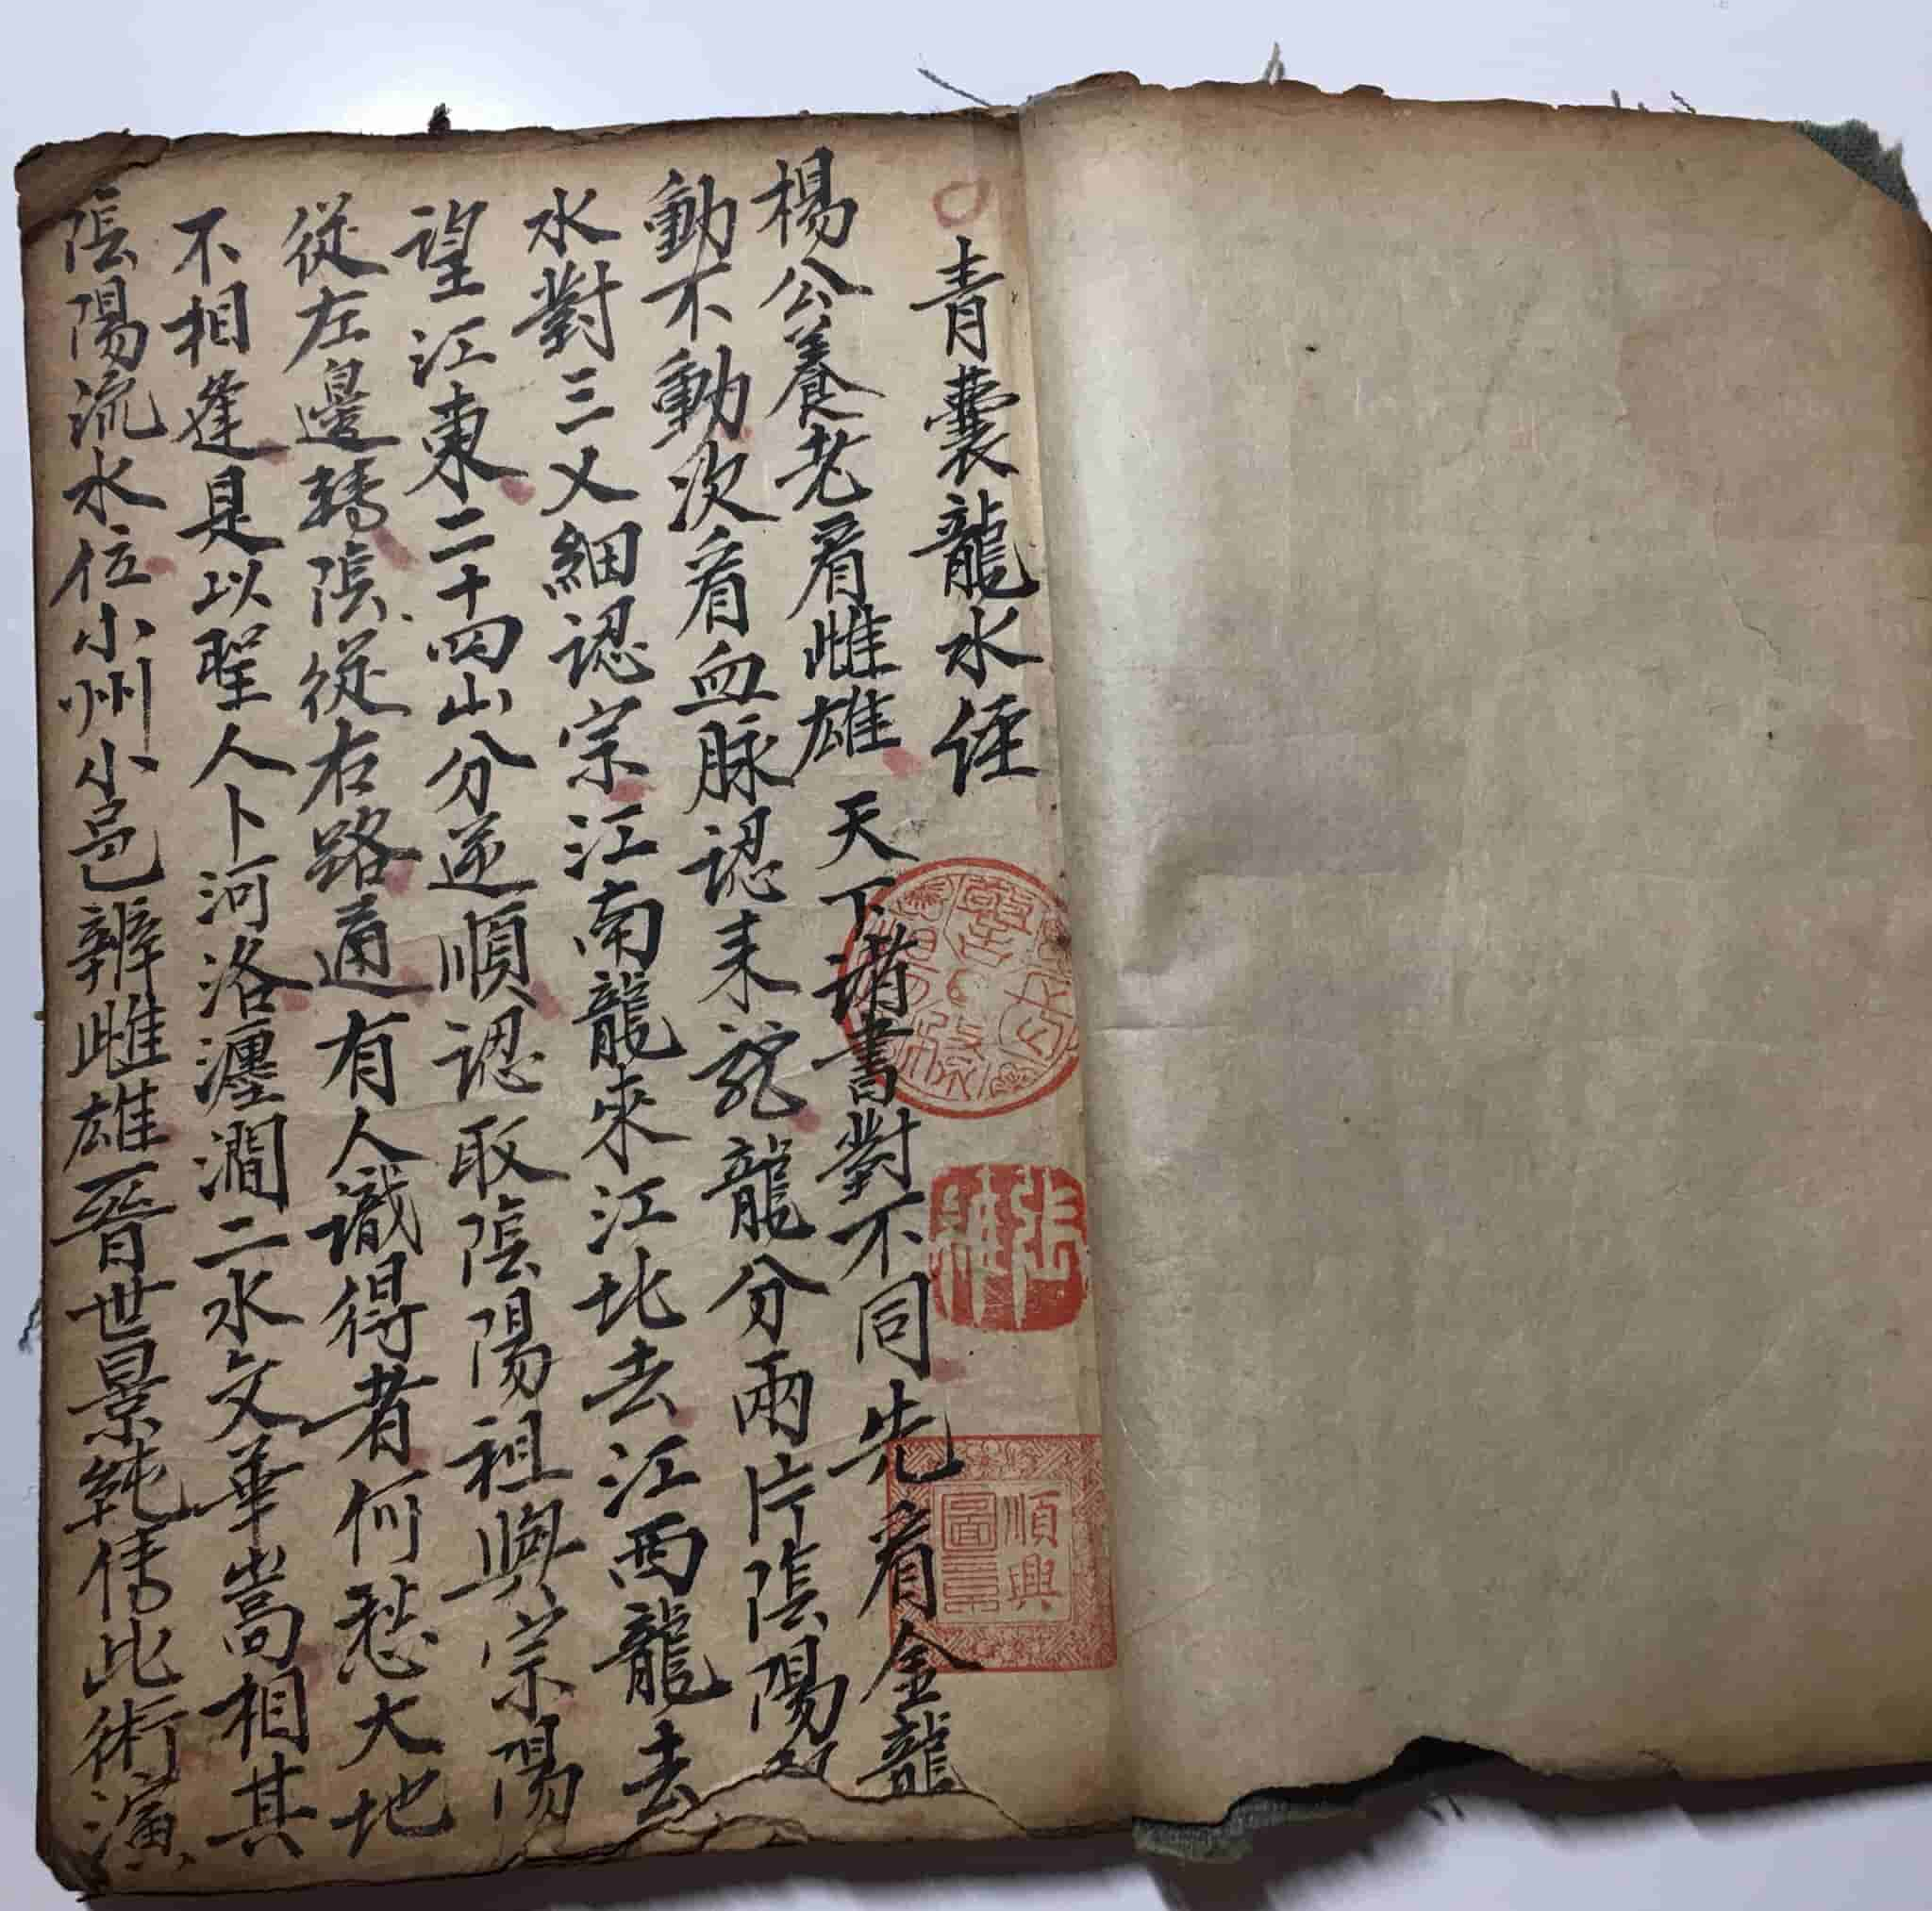 青囊龍水經
楊公養老看雌雄天下諸書對不同先看金龍
動不動次看血脉認来龍龍分兩片陰陽
水對三义細認宗江南龍來江北去江西龍去
望江東二十四山分逆順認取陰陽祖與宗陽
從左邊轉陰從右路通有人識得者何愁大地
不相逢是以聖人卜河洛瀍澗二水交華嵩相其
陰陽流水位小州小邑辨雌雄晉世景純傳此術演
順興
圖章